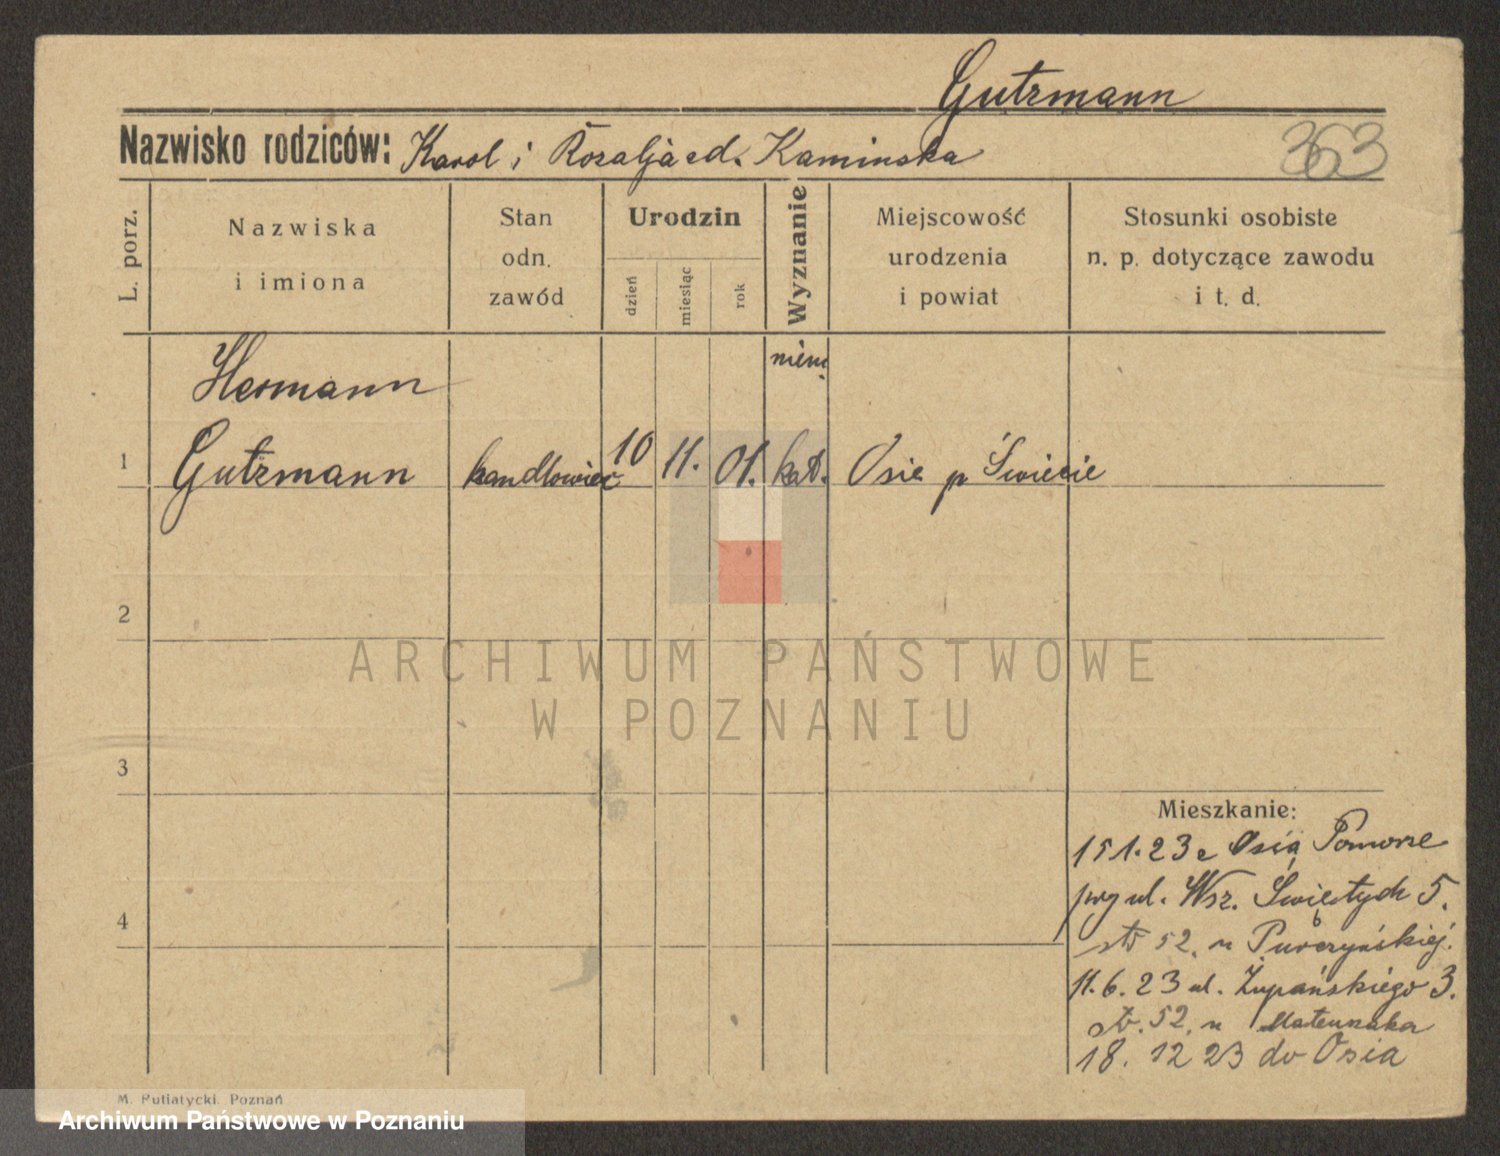 Gutzmann
Nazwisko rodziców: Karol i Rozalja ed. Kaminska
363
L. porz.
Nazwiska
i imiona
Stan
odn.
zawód
Urodzin
dzień
miesiąc
rok
Wyznanie
Miejscowość
urodzenia
i powiat
Stosunki osobiste
n. p. dotyczące zawodu
i t. d.
Hermann
niem.
1 Gutzmann handlowiec 10 11. 01. kat. Osie p Świecie
2
3
4
ARCHIWUM PAŃSTWOWE
W POZNANIU
Mieszkanie:
15 1. 23 z Osia Pomorze
ul. Wsz. Świętych 5.
52. u
11. 6. 23 ul. Żupańskiego 3.
52. u
18. 12 23 do Osia
M. Putiatycki. Poznań
Archiwum Państwowe w Poznaniu